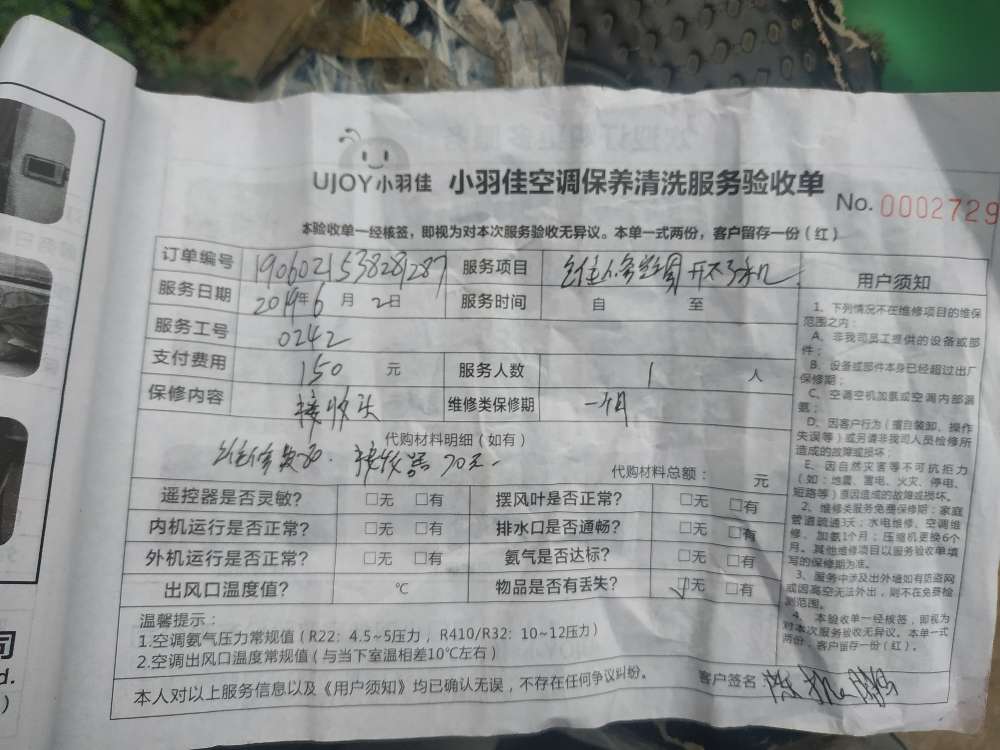 UJOY小羽佳 小羽佳空调保养清洗服务验收单
No. 0002729
本验收单一经核签，即视为对本次服务验收无异议。本单一式两份，客户留存一份（红）
订单编号 1906021538281287 服务项目 维修空调开不了机
服务日期 2019年6月2日 服务时间 自 至
服务工号 0242
支付费用 150 元 服务人数 1 人
保修内容 接收头 维修类保修期 一个月
代购材料明细（如有）
维修费 接收器70元
代购材料总额： 元
遥控器是否灵敏? □无 □有 摆风叶是否正常? □无 □有
内机运行是否正常? □无 □有 排水口是否通畅? □无 □有
外机运行是否正常? □无 □有 氨气是否达标? □无 □有
出风口温度值? ℃ 物品是否有丢失? ☑无 □有
温馨提示：
1.空调氨气压力常规值（R22：4.5~5压力，R410/R32：10~12压力）
2.空调出风口温度常规值（与当下室温相差10℃左右）
本人对以上服务信息以及《用户须知》均已确认无误，不存在任何争议纠纷。
客户签名
用户须知
1、下列情况不在维修项目的维保
范围之内：
A、非我司员工提供的设备或部
件；
B、设备或部件本身已经超过出厂
保修期；
C、空调空机加氨或空调内部漏
氨；
D、因客户行为（擅自装卸、操作
失误等）或另请非我司人员检修所
造成的故障或损坏；
E、因自然灾害等不可抗拒力
（如：地震、雷电、火灾、停电、
短路等）原因造成的故障或损坏。
2、维修类服务免费保修期：家庭
管道疏通3天；水电维修、空调维
修、加氨1个月；压缩机更换6个
月。其他维修项目以服务验收单填
写的保修期为准。
3、服务中涉及出外墙如有防盗网
或因高空无法外出，则不在免费检
测范围。
4、本验收单一经核签，即视为
对本次服务验收无异议。本单一式
两份，客户留存一份（红）。
司
d.
)